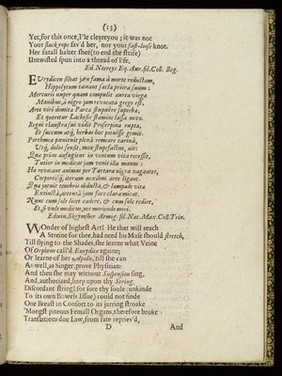 (13)
Yet, for this once, I'le cleare you; it was not
Your slack-rope sav'd her, nor your fast-loose knot.
Her fatall halter shee (to end the strife)
Untwisted spun into a thread of life,
Ed. Norreys Eq. Aur. fil. Coll. Reg.
EUrydicen sileat jam fama à morte reductam,
Hippolytum taceant facta priora suum:
Mercurii nuper quam compulit aurea virga
Manibus, à nigro jam revocata grege est.
Arte viri domita Parca stupuêre superba,
Et queritur Lachesis stamina lassa novo.
Regni claustra sui vidit Proserpina rupta,
Et succum atq; herbas hoc potuisse gemit.
Parcarum potuit plena remeare carina,
Utq; dolus sensit, mox stupefactus, ait:
Quæ prius aufugiens in ventum vita recessit,
Tutior in medicas jam venit illa manus:
Hæ revocant animas per Tartara nigra vagantes,
Corporisq; iterum maxima habere ligant.
Sua jacuit tenebris obducta, & lampade vita
Extinctâ, accensâ jam face clara micat.
Nunc cum sole licet cadere, & cum sole redire,
Et si vule medicum, ne moriendo mori.
Edwin. Skrymsher Armig. fil. Nat. Max. Coll. Trin.
WOnder of highest Art! He that will reach
A Streine for thee, had need his Muse should stretch,
Till flying to the Shades, she learne what Veine
Of Orpheus call'd Eurydice againe;
Or learne of her Apollo, till she can
As well, as Singer, prove Physitian:
And then she may without Suspension sing,
And, authorized, harp upon thy String.
Discordant string! for sure thy foule (unkinde
To its own Bowels Issue) could not finde
One Breast in Consort to its jarring stroake
'Mongst piteous Femall Organs, therefore broke
Translations due Law, from fate repriev'd,
D And